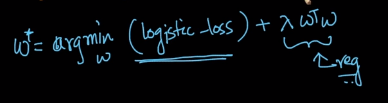 w* = argmin (logistic-loss) + λ wᵀw
w
reg